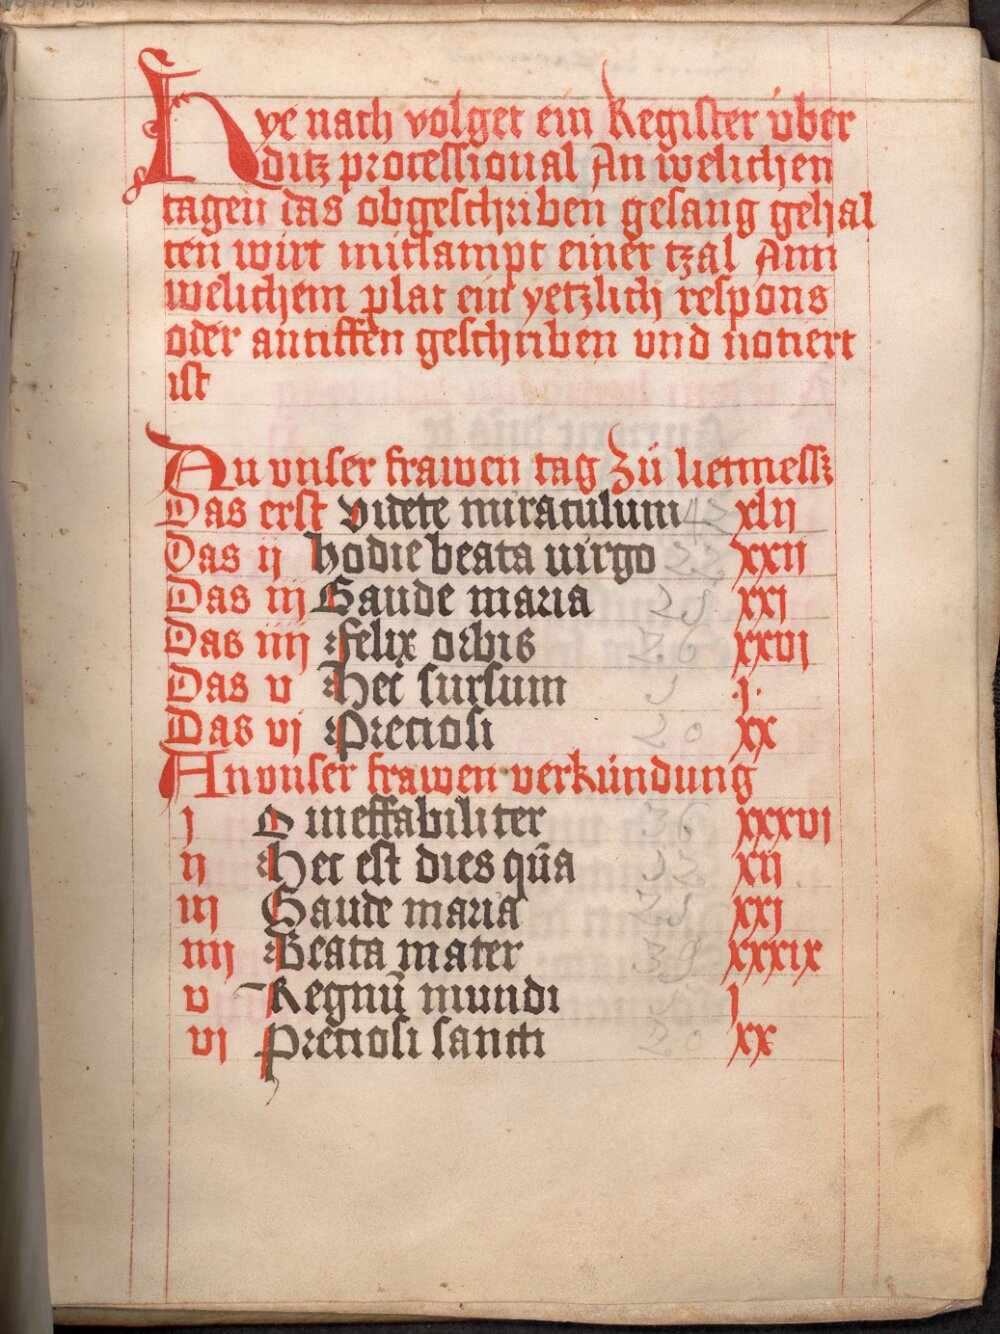 Hye nach volget ein Register vber
ditz processional An welichen
tagen das obgeschriben gesang gehal
ten wirt mitsampt einer tzal Ann
welichem plat ein yetzlich respons
oder antiffen geschriben vnd notiert
ist
An vnser frawen tag Zů lietmessz
Das erst Videte miraculum 42 xlij
Das ij hodie beata uirgo 22 xxij
Das iij Gaude maria 21 xxj
Das iiij Felix orbis 26 xxvj
Das v Hec sursum 1 j
Das vj Preciosi 20 xx
An vnser frawen verkúndung
j O ineffabiliter 36 xxxvj
ij Hec est dies qua̅ 12 xij
iij Gaude maria 21 xxj
iiij Beata mater 39 xxxix
v Regnu̅ mundi j
vj Preciosi sancti 20 xx